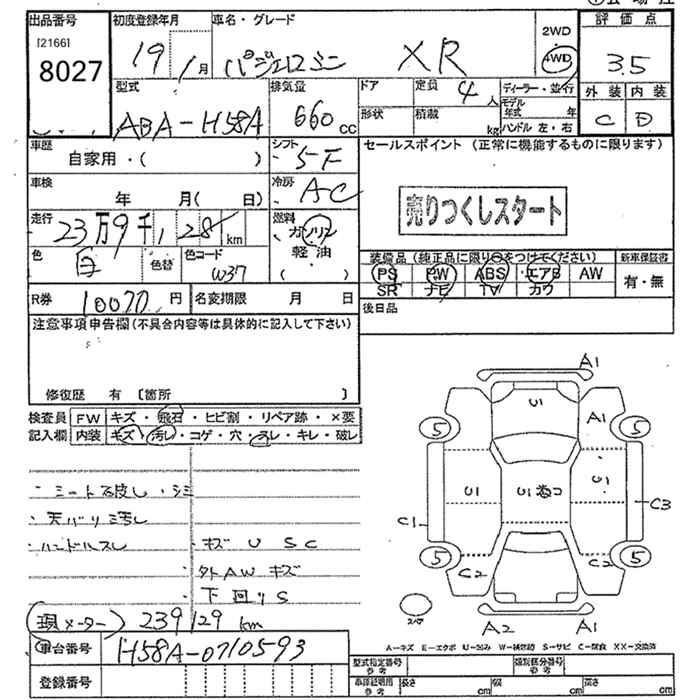 出品番号 初度登録年月 車名・グレード 2WD 評価点
[2166]
8027 19 1月 パジェロミニ XR 4WD 3.5
型式 排気量 ドア 定員 4人 ディーラー・並行 外装 内装
ABA-H58A 660 CC 形状 積載 kg モデル年式 年 C D
ハンドル 左・右
車歴 シフト セールスポイント (正常に機能するものに限ります)
自家用・( ) 5F
車検 冷房
年 月( 日) AC 売りつくしスタート
走行 燃料
23万9千128km ガソリン
色 白 色替 色コード W37 軽油
( )
装備品(純正品に限り○をつけてください) 新車保証書
PS PW ABS エアB AW 有・無
SR ナビ TV カワ
R券 10070円 名変期限 月 日 後日品
注意事項申告欄(不具合内容等は具体的に記入して下さい)
修復歴 有 〔箇所 〕
検査員 FW キズ・飛石・ヒビ割・リペア跡・×要
記入欄 内装 キズ・汚レ・コゲ・穴・スレ・キレ・破レ
・シート 皮し・シミ
・天バリ汚し
・ハンドルスレ ・キズ U S C
・外AW キズ
・下回りS
現メーター) 239129km
車台番号 H58A-0710593
登録番号
A1
U1 A1
5 5
U1 U1 U1
C1 C3
5 5
C2 C2
スペア
A2 A1
A-キズ E-エクボ U-凹み W-補修跡 S-サビ C-腐食 XX-交換済
型式指定番号 参考 類別区分番号 参考
車検証明用 参考 長さ cm 幅 cm 高さ cm